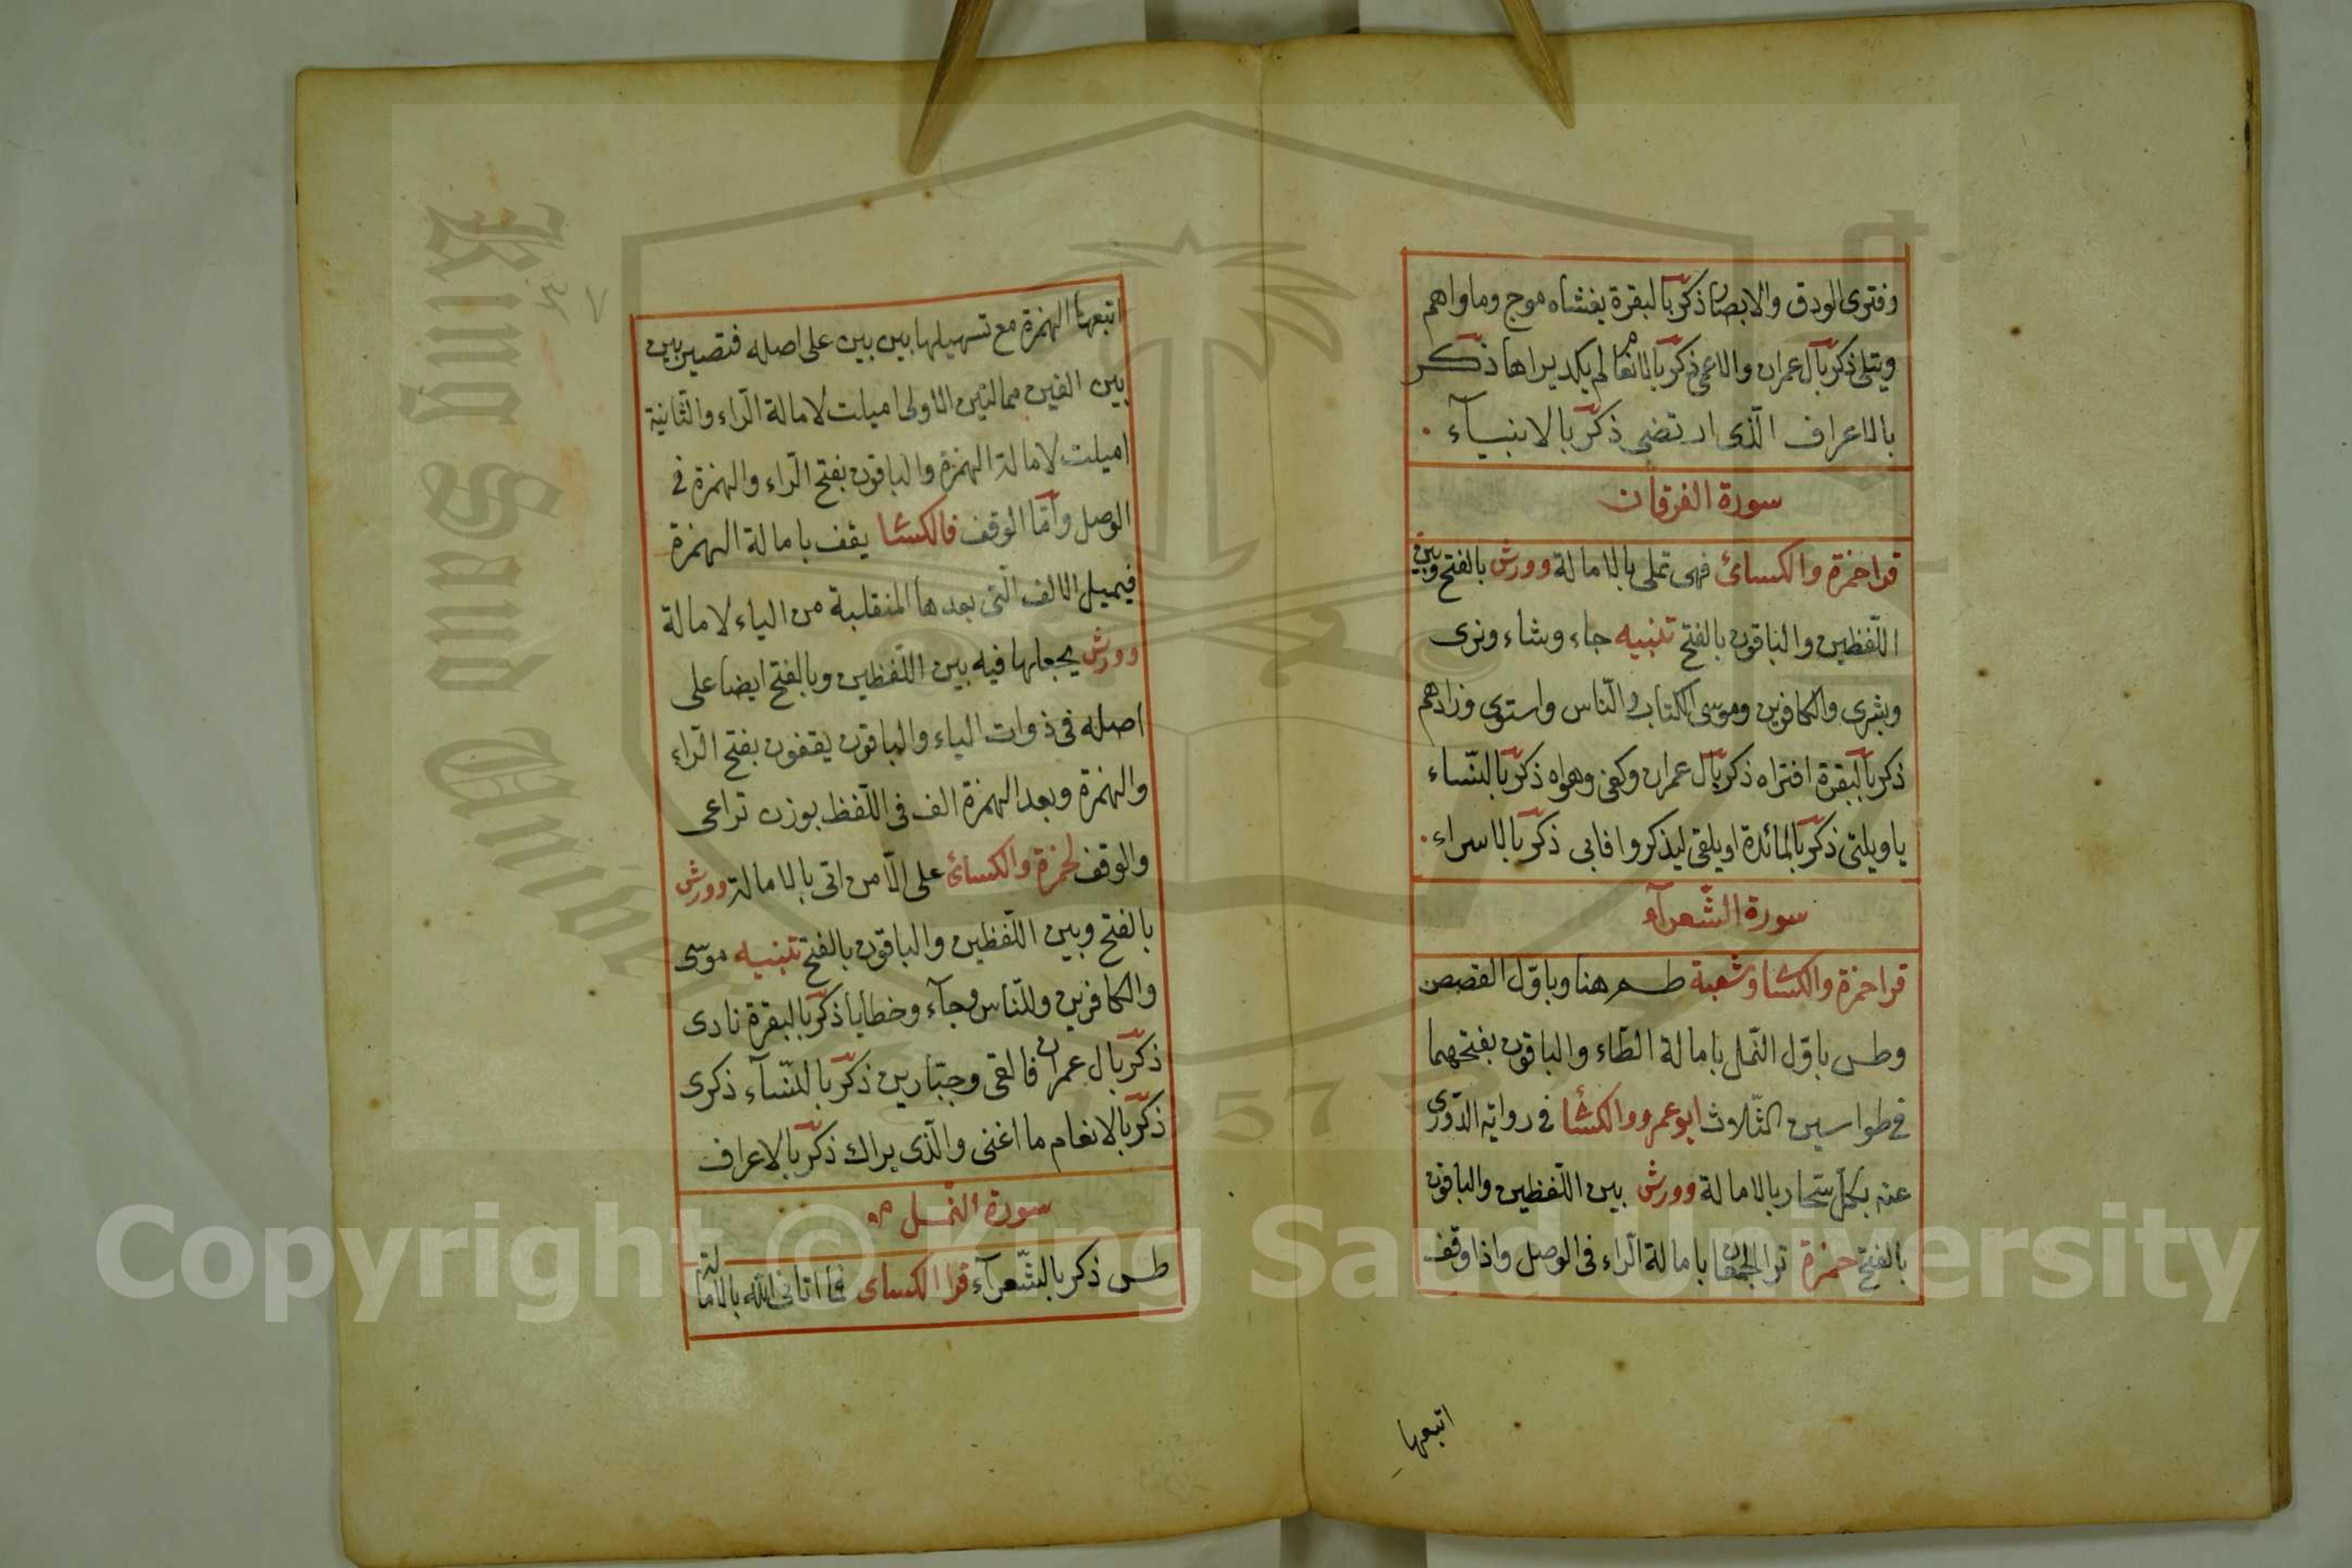 وفترى الودق والابصار ذكر بالبقرة يغشاه موج وماواهم
ويتلى ذكر بآل عمران والاعمى ذكر بالانعام لم يكد يراها ذكر
بالاعراف الّذى ارتضى ذكر بالانبيآء
سورة الفرقان
قرا حمزة والكسائ فهى تملى بالامالة وورش بالفتح وبين
اللّفظين والباقون بالفتح تنبيه جاء وشاء ونرى
وبشرى والكافرين وموسى الكتاب والنّاس واستوى وزادهم
ذكر بالبقرة افتراه ذكر بآل عمران وكفى وهواه ذكر بالنّساء
ياويلتى ذكر بالمائدة او يلقى ليذكروا فابى ذكر بالاسراء
سورة الشّعرآء
قرا حمزة والكسا وشعبة طسم هنا وباوّل القصص
وطس باوّل النّمل بامالة الطّاء والباقون بفتحهما
فى طواسين الثّلاث ابو عمرو والكسا فى رواية الدّورى
عنه بكل سحّار بالامالة وورش بين اللّفظين والباقون
بالفتح حمزة ترا الجمعان بامالة الرّاء فى الوصل واذا وقف
اتبعها
اتبعها الهمزة مع تسهيلها بين بين على اصله فتصير بين
بين الفين ممالتين الاولى اميلت لامالة الرّاء والثّانية
اميلت لامالة الهمزة والباقون بفتح الرّاء والهمزة فى
الوصل وامّا الوقف فالكسا يقف بامالة الهمزة
فيميل الالف الّتى بعدها المنقلبة من الياء لامالة
وورش يجعلها فيه بين اللّفظين وبالفتح ايضا على
اصله فى ذوات الياء والباقون يقفون بفتح الرّاء
والهمزة وبعد الهمزة الف فى اللّفظ بوزن تراعى
والوقف لحمزة والكسائ على الّا من اتى بالامالة وورش
بالفتح وبين اللّفظين والباقون بالفتح تنبيه موسى
والكافرين وللنّاس وجآء وخطايا ذكر بالبقرة نادى
ذكر بال عمران فالقى وجبّارين ذكر بالنّسآء ذكرى
ذكر بالانعام ما اغنى والّذى يراك ذكر بالاعراف
سورة النّمل
طس ذكر بالشّعرآء قرا الكساى فما اتانى الله بالامالة
Copyright © King Saud University
King Saud University
1957